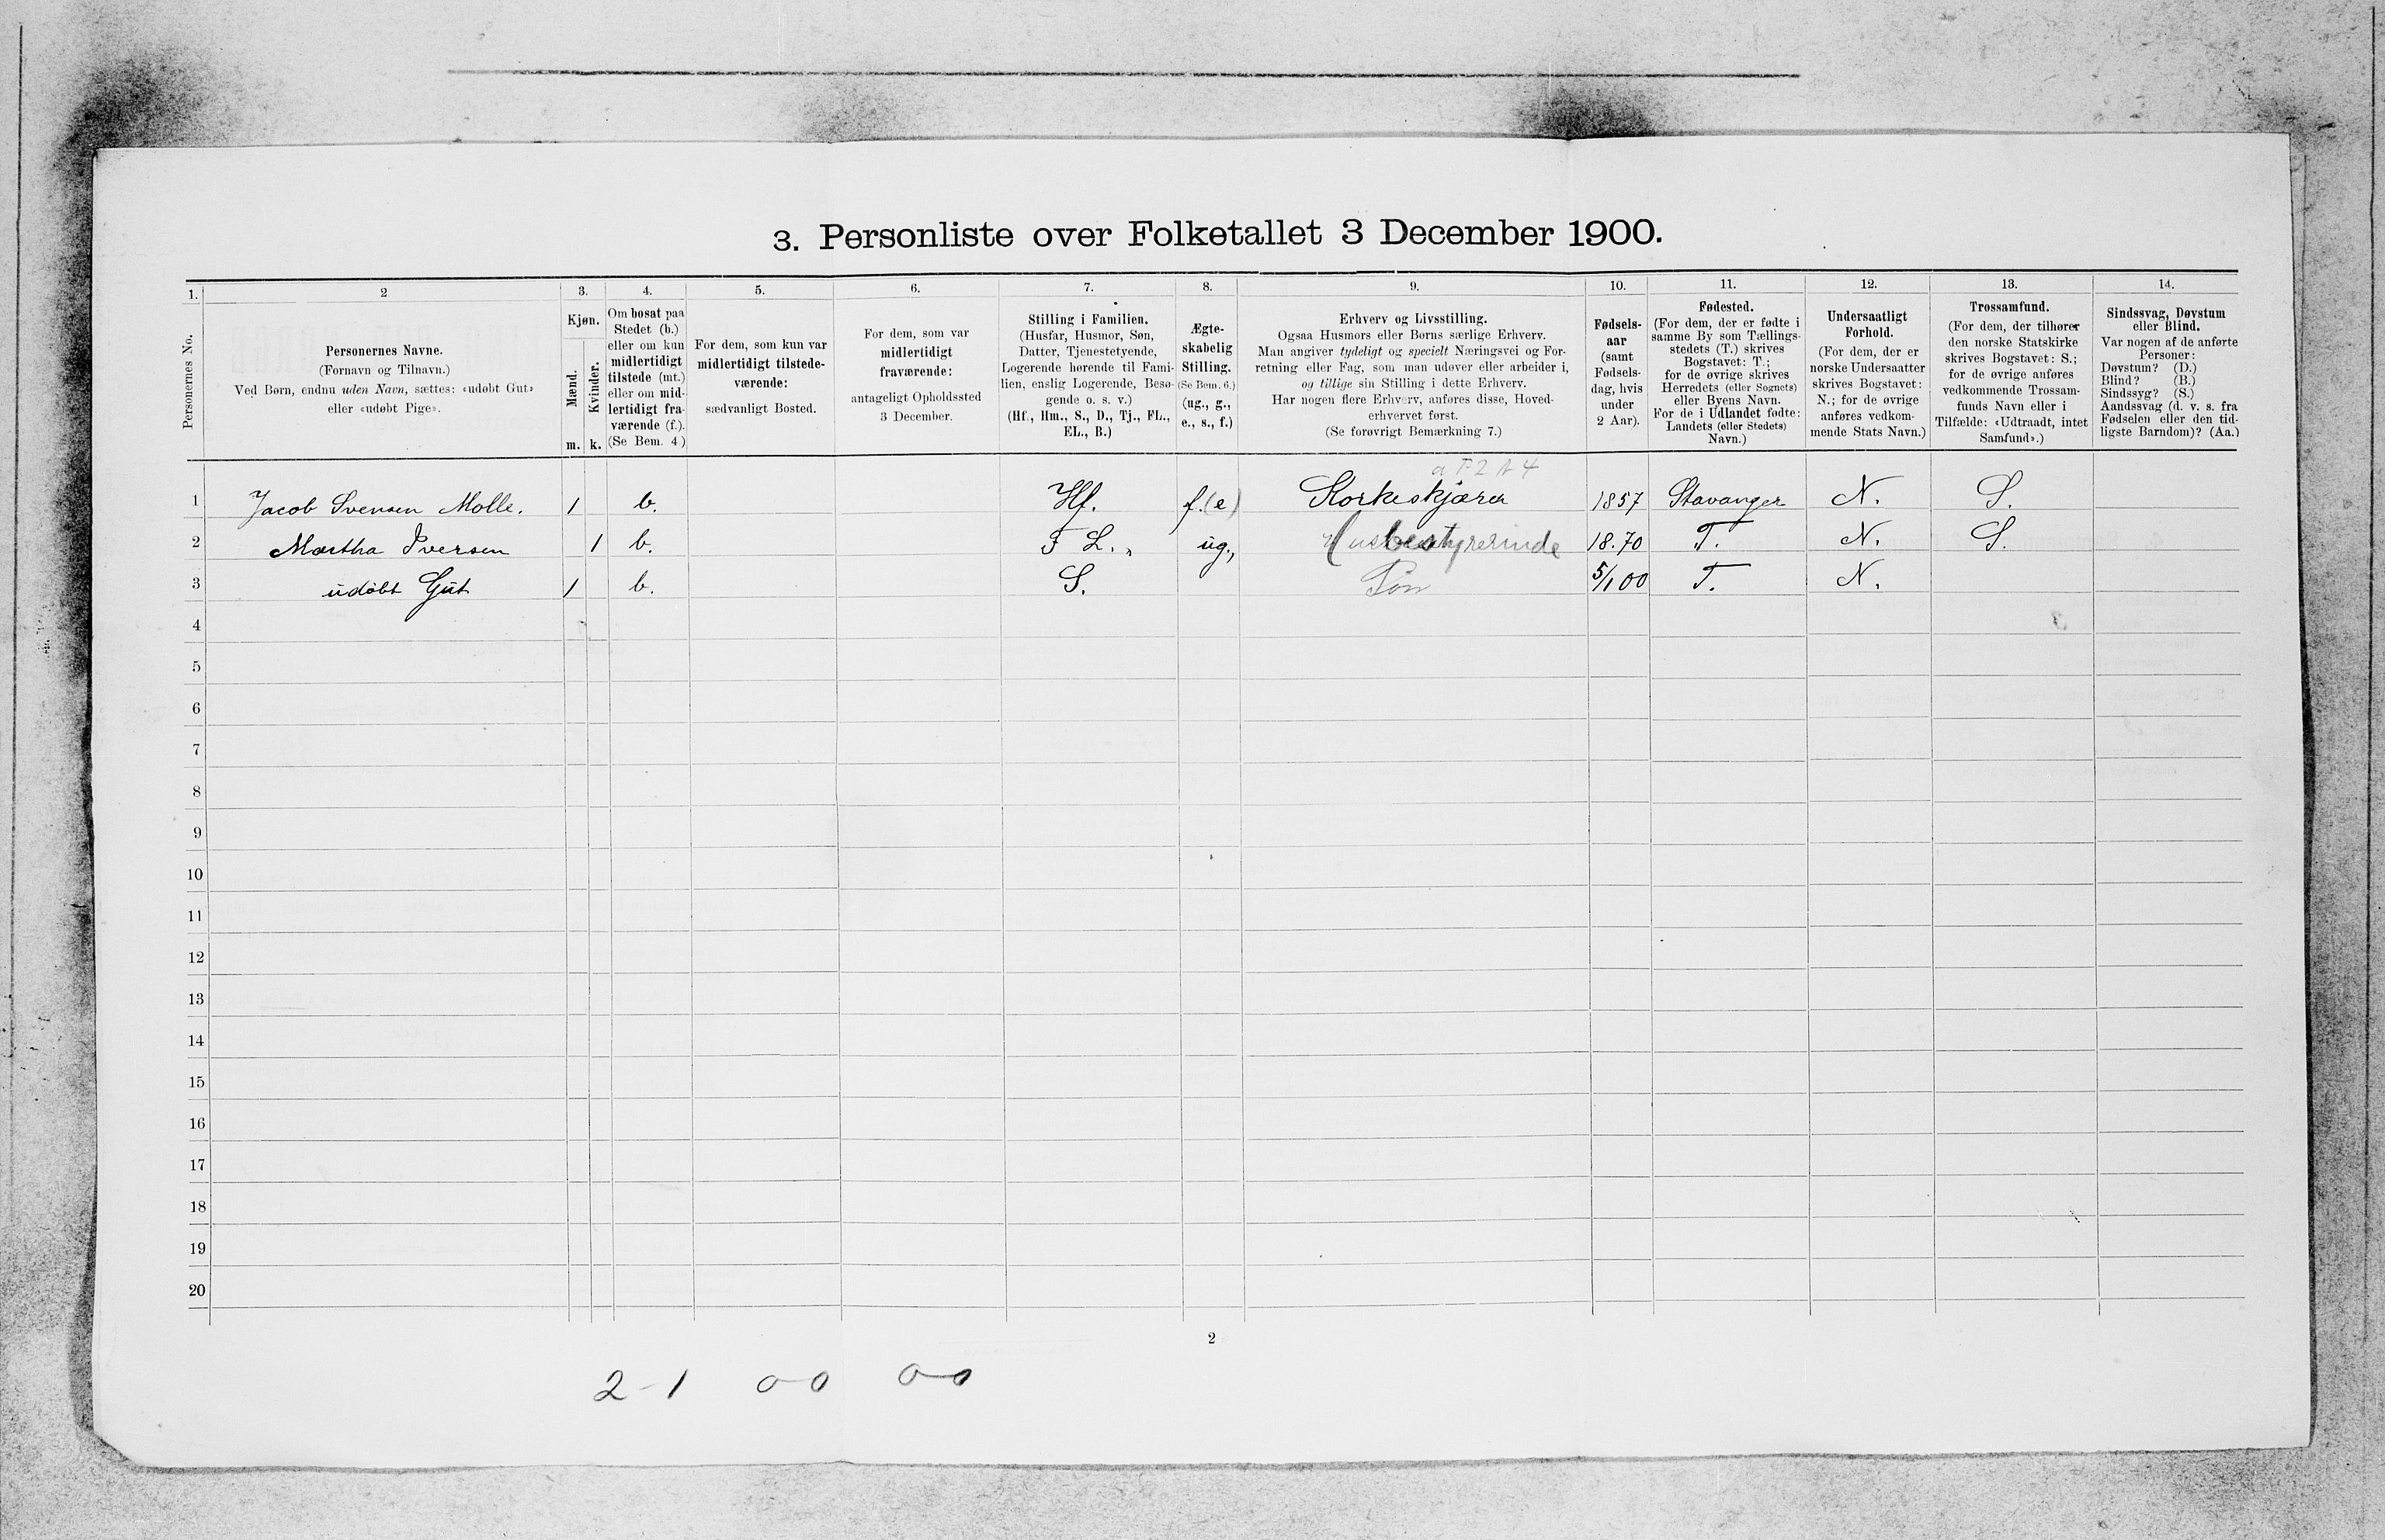 3. Personliste over Folketallet 3 December 1900.
1.
2
3.
4.
5.
6.
7.
8.
9.
10.
11.
12.
13.
14.
Personernes No.
Personernes Navne.
(Fornavn og Tilnavn.)
Ved Børn, endnu uden Navn, sættes: «udøbt Gut»
eller «udøbt Pige».
Kjøn.
Mænd.
Kvinder.
m.
k.
Om bosat paa
Stedet (b.)
eller om kun
midlertidigt
tilstede (mt.)
eller om mid-
lertidigt fra-
værende (f.).
(Se Bem. 4)
For dem, som kun var
midlertidigt tilstede-
værende:
sædvanligt Bosted.
For dem, som var
midlertidigt
fraværende:
antageligt Opholdssted
3 December.
Stilling i Familien.
(Husfar, Husmor, Søn,
Datter, Tjenestetyende,
Logerende hørende til Fami-
lien, enslig Logerende, Besø-
gende o. s. v.)
(Hf., Hm., S., D., Tj., FL.,
EL., B.)
Ægte-
skabelig
Stilling.
(Se Bem. 6.)
(ug., g.,
e., s., f.)
Erhverv og Livsstilling.
Ogsaa Husmors eller Børns særlige Erhverv.
Man angiver tydeligt og specielt Næringsvei og For-
retning eller Fag, som man udøver eller arbeider i,
og tillige sin Stilling i dette Erhverv.
Har nogen flere Erhverv, anføres disse, Hoved-
erhvervet først.
(Se forøvrigt Bemærkning 7.)
Fødsels-
aar
(samt
Fødsels-
dag, hvis
under
2 Aar).
Fødested.
(For dem, der er fødte i
samme By som Tællings-
stedets (T.) skrives
Bogstavet: T.;
for de øvrige skrives
Herredets (eller Sognets)
eller Byens Navn.
For de i Udlandet fødte:
Landets (eller Stedets)
Navn.)
Undersaatligt
Forhold.
(For dem, der er
norske Undersaatter
skrives Bogstavet:
N.; for de øvrige
anføres vedkom-
mende Stats Navn.)
Trossamfund.
(For dem, der tilhører
den norske Statskirke
skrives Bogstavet: S.;
for de øvrige anføres
vedkommende Trossam-
funds Navn eller i
Tilfælde: «Udtraadt, intet
Samfund».)
Sindssvag, Døvstum
eller Blind.
Var nogen af de anførte
Personer:
Døvstum? (D.)
Blind? (B.)
Sindssyg? (S.)
Aandssvag (d. v. s. fra
Fødselen eller den tid-
ligste Barndom)? (Aa.)
1 Jacob Svensen Molle. 1 b. Hf. f.(e) Korkeskjærer 1857 Stavanger N. S.
2 Martha Iversen 1 b. F L. ug., Husbestyrerinde 18.70 T. N. S.
3 udøbt Gut 1 b. S. Søn 5/1 00 T. N.
4
5
6
7
8
9
10
11
12
13
14
15
16
17
18
19
20
2
2-1 00 00